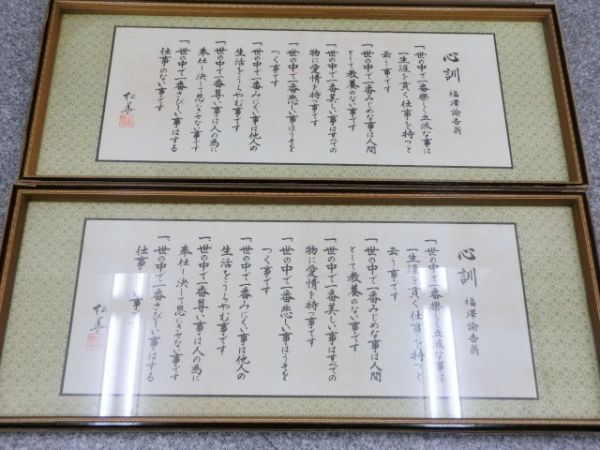 心訓
福澤諭吉翁
一、世の中で一番楽しく立派な事は
一生涯を貫く仕事を持つと
云う事です
一、世の中で一番みじめな事は人間
として教養のない事です
一、世の中で一番美しい事はすべての
物に愛情を持つ事です
一、世の中で一番悲しい事はうそを
つく事です
一、世の中で一番みにくい事は他人の
生活をうらやむ事です
一、世の中で一番尊い事は人の為に
奉仕し決して恩にきせない事です
一、世の中で一番さびしい事はする
仕事のない事です
心訓
福澤諭吉翁
一、世の中で一番楽しく立派な事は
一生涯を貫く仕事を持つと
云う事です
一、世の中で一番みじめな事は人間
として教養のない事です
一、世の中で一番美しい事はすべての
物に愛情を持つ事です
一、世の中で一番悲しい事はうそを
つく事です
一、世の中で一番みにくい事は他人の
生活をうらやむ事です
一、世の中で一番尊い事は人の為に
奉仕し決して恩にきせない事です
一、世の中で一番さびしい事はする
仕事のない事です